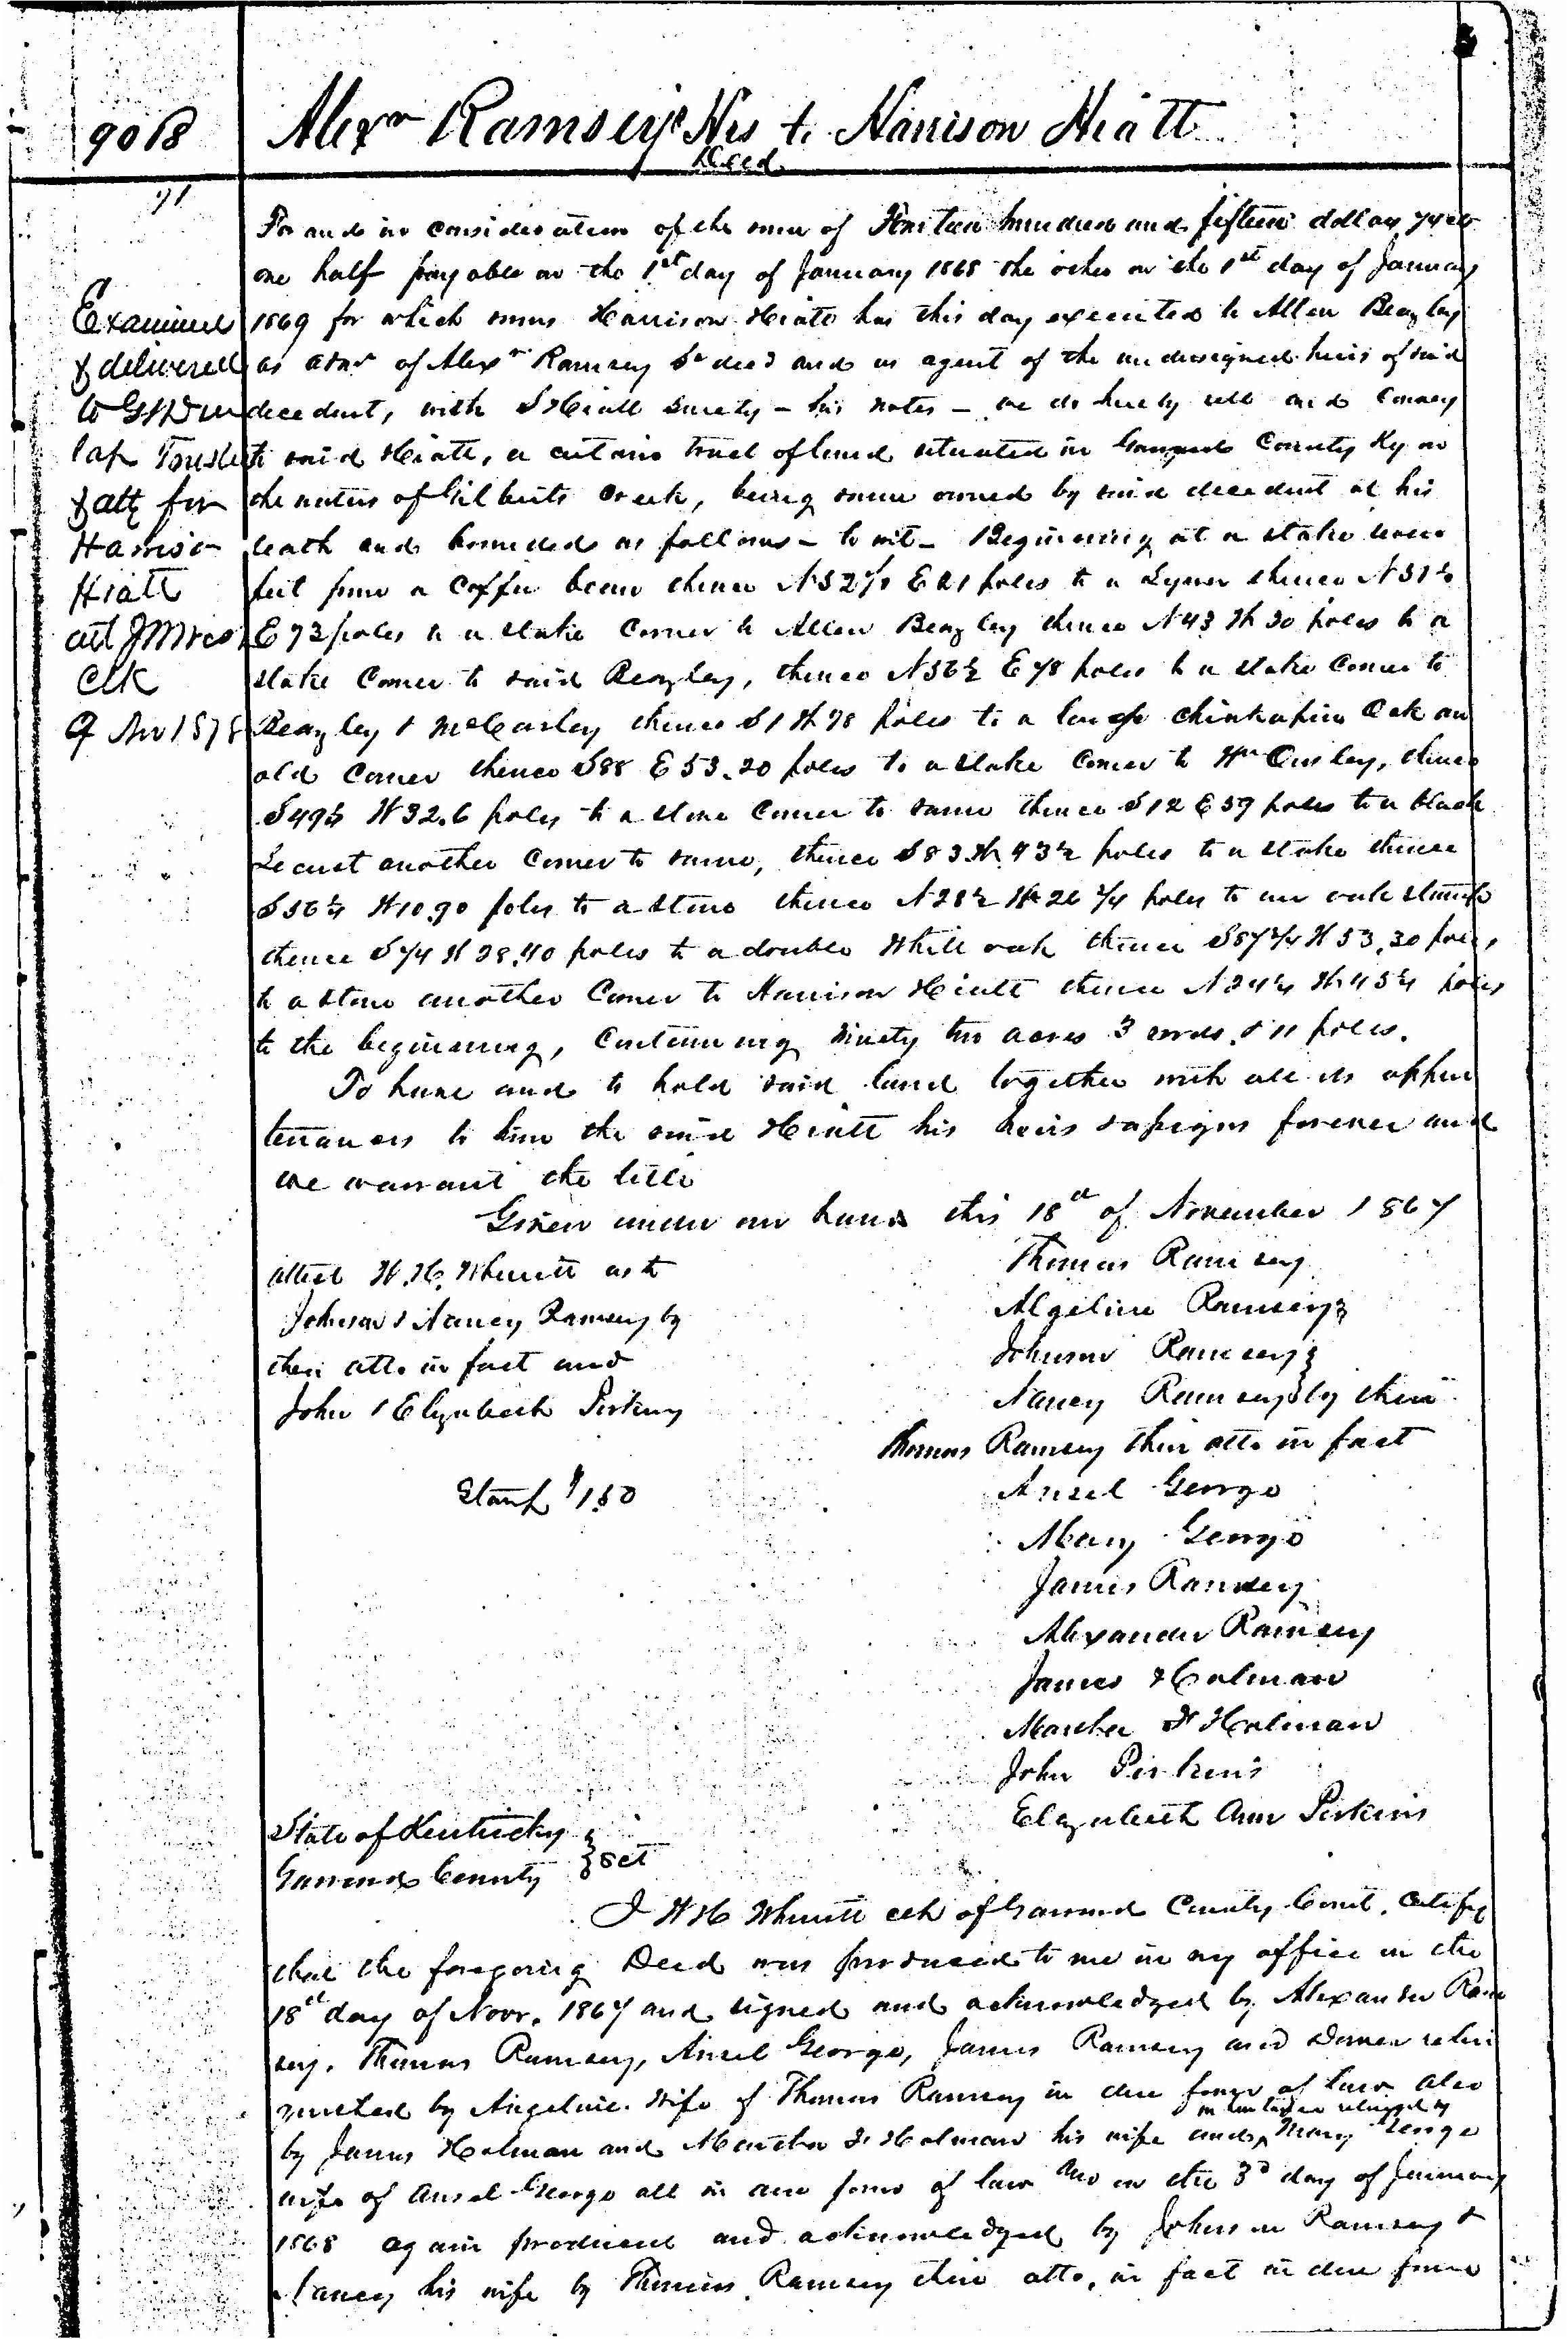 9018
Alexr Ramsey's Hrs to Harrison Hiatt
Deed
Examined
& delivered
to
& atty for
Harrison
Hiatt
att
Clk
9 Nov 1878
For and in consideration of the sum of hundred and fifteen dollars 74 cts
one half payable on the 1st day of January 1868 the other on the 1st day of January
1869 for which sums Harrison Hiatt has this day executed to Allen Beazley
as admr of Alexr Ramsey Sr decd and as agent of the undersigned heirs of said
decedent, with S Hiatt surety - his notes - we do hereby sell and convey
to said Hiatt, a certain tract of land situated in Garrard County Ky on
the waters of Gilberts Creek, being same owned by said decedent at his
death and bounded as follows - to wit - Beginning at a stake
feet from a coffee bean thence N 52 E 21 poles to a thence N 51½
E 73 poles to a stake corner to Allen Beazley thence N 43 W 30 poles to a
stake corner to said Beazley, thence N 56½ E 78 poles to a stake corner to
Beazley & thence S 1 W 78 poles to a large chinkapin Oak an
old corner thence S 88 E 53.20 poles to a stake corner to Wm Ousley, thence
S 49½ W 32.6 poles to a stone corner to same thence S 12 E 59 poles to a black
Locust another corner to same, thence S 83 W 43½ poles to a stake thence
S 56¼ W 10.90 poles to a stone thence N 28½ W 26 ¾ poles to an oak stump
thence S 74 W 28.40 poles to a double White oak thence S 87¾ W 53.30 poles,
to a stone another corner to Harrison Hiatt thence N 24¼ W 45¼ poles
to the beginning, containing ninety two acres 3 roods & 11 poles.
To have and to hold said land together with all its appur
tenances to him the said Hiatt his heirs & assigns forever and
we warrant the title
Given under our hands this 18th of November 1867
attest W. H. Wherritt as to
Johnson & Nancy Ramsey by
their atto in fact and
John & Elizabeth Perkins
Stamp $1.50
Thomas Ramsey
Algeline Ramsey
Johnson Ramsey
Nancy Ramsey by their
Thomas Ramsey their atto in fact
Ansel George
Mary George
James Ramsey
Alexander Ramsey
James Holman
Martha F Holman
John Perkins
Elizabeth Ann Perkins
State of Kentucky
Garrard County } Sct
I W H Wherritt clk of Garrard County Court, certify
that the foregoing Deed was produced to me in my office on the
18th day of Novr. 1867 and signed and acknowledged by Alexander Ram
sey, Thomas Ramsey, Ansel George, James Ramsey and Dower relin
quished by Angeline wife of Thomas Ramsey in due form of law also
by James Holman and Martha F Holman his wife and Mary George
wife of Ansel George all in due form of law and on the 3d day of January
1868 again produced and acknowledged by Johnson Ramsey &
Nancy his wife by Thomas Ramsey their atto, in fact in due form